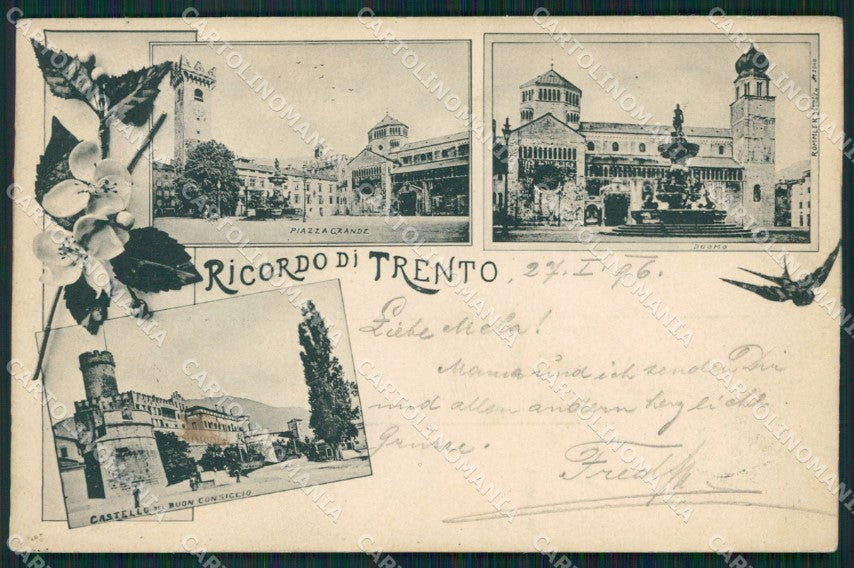 PIAZZA GRANDE
DUOMO
ROMMLER & JONAS
RICORDO DI TRENTO, 27. I. 96.
Liebe Mela!
Mama und ich senden Dir
und allen andern herzliche
Grüsse.
Fred
CASTELLO DEL BUON CONSIGLIO
CARTOLINOMANIA